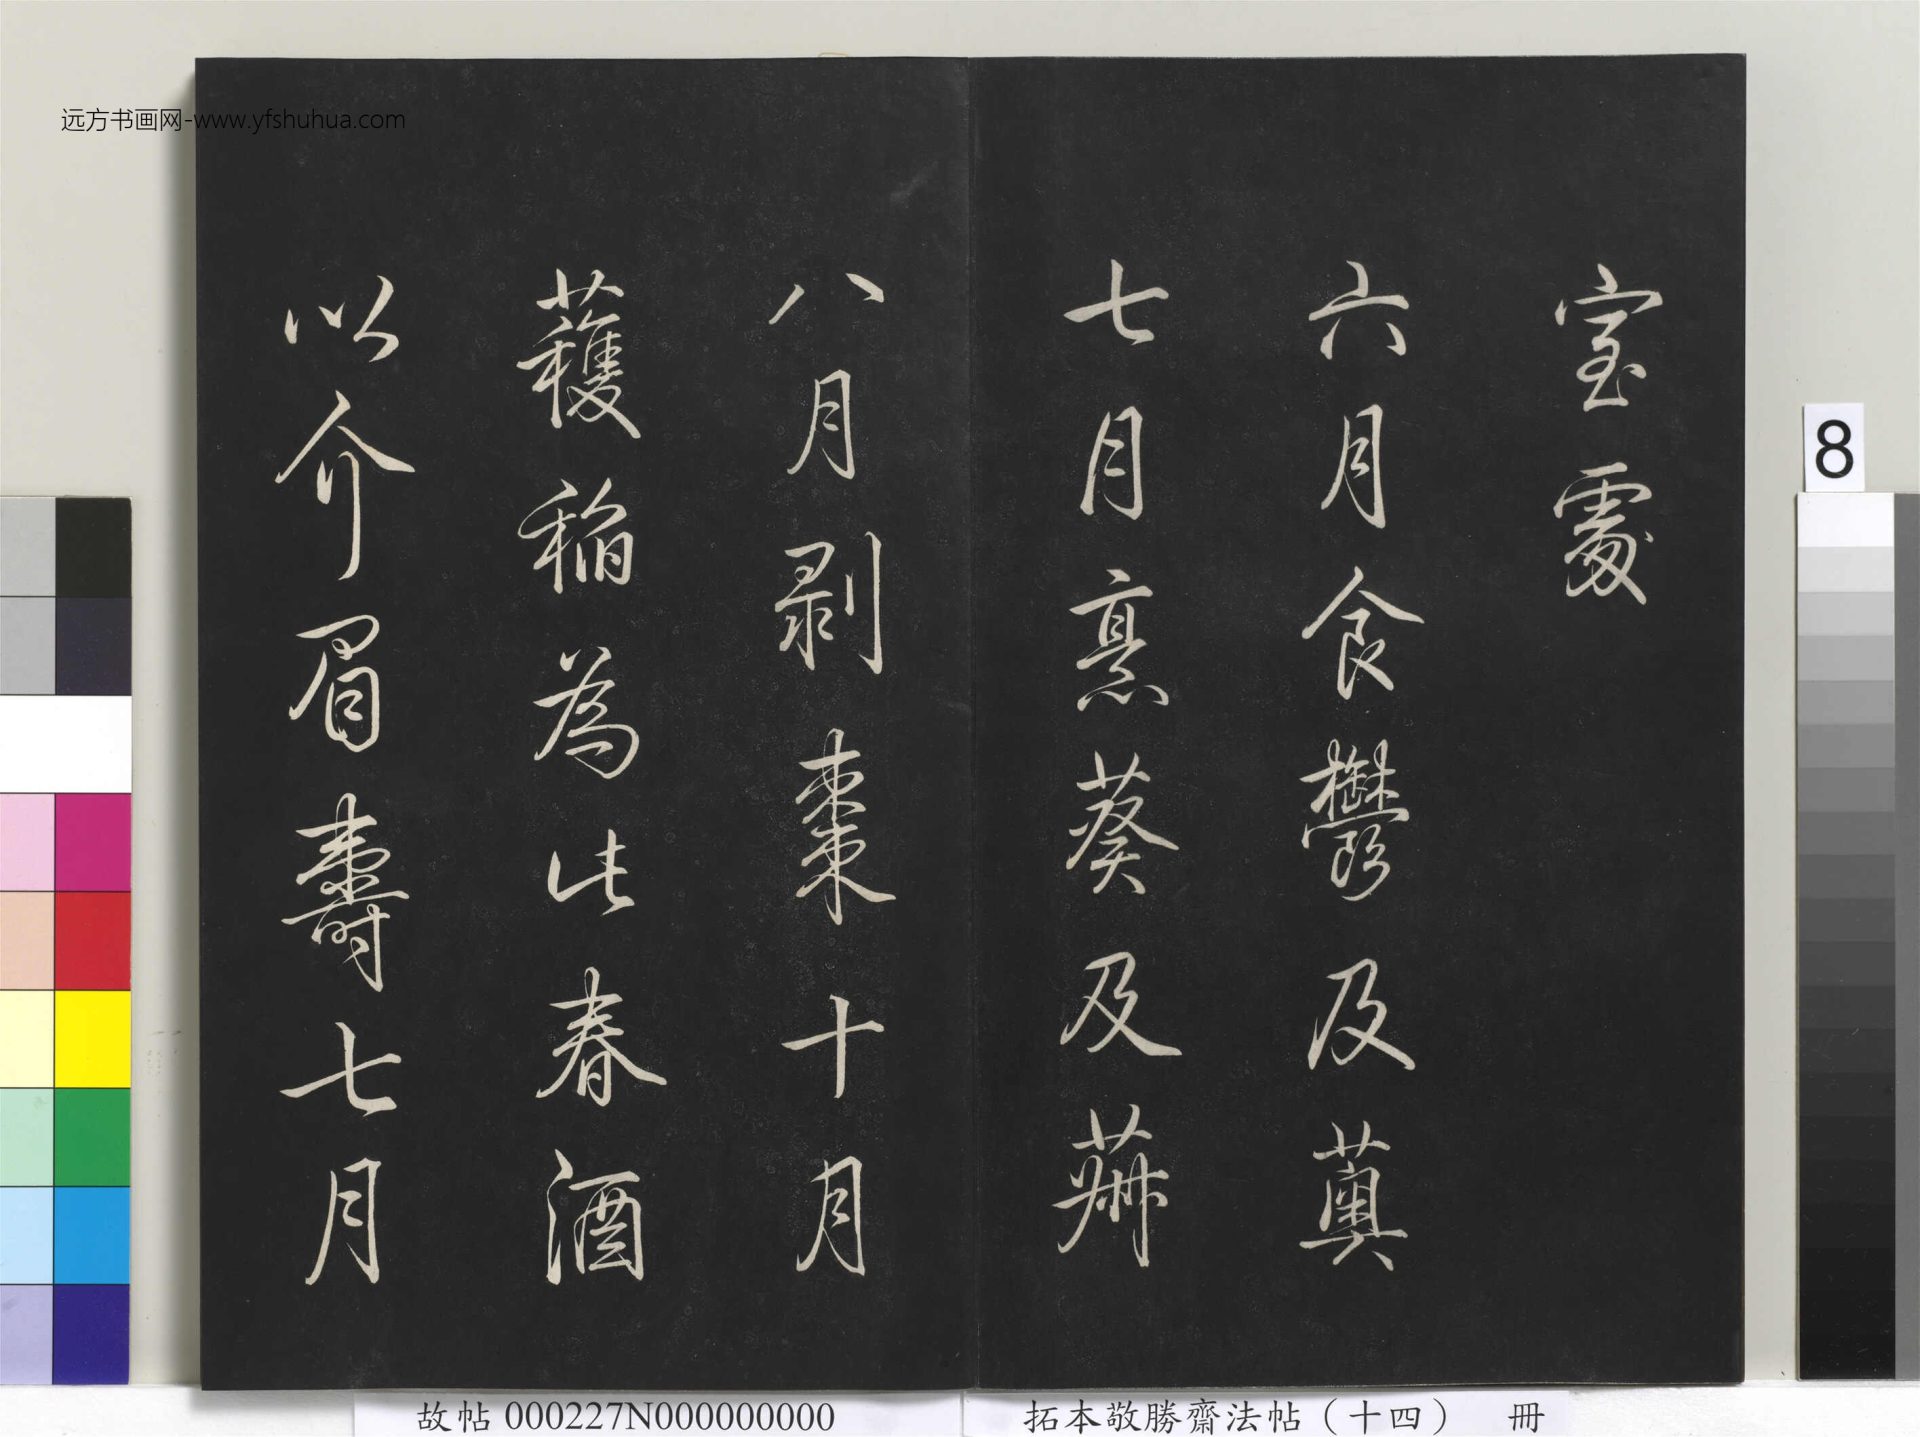 远方书画网-www.yfshuhua.com
室處
六月食鬱及薁
七月烹葵及菽
八月剥棗十月
蓚稻為此春酒
以介眉壽七月
8
故帖 000227N000000000
拓本敬勝齋法帖（十四） 冊